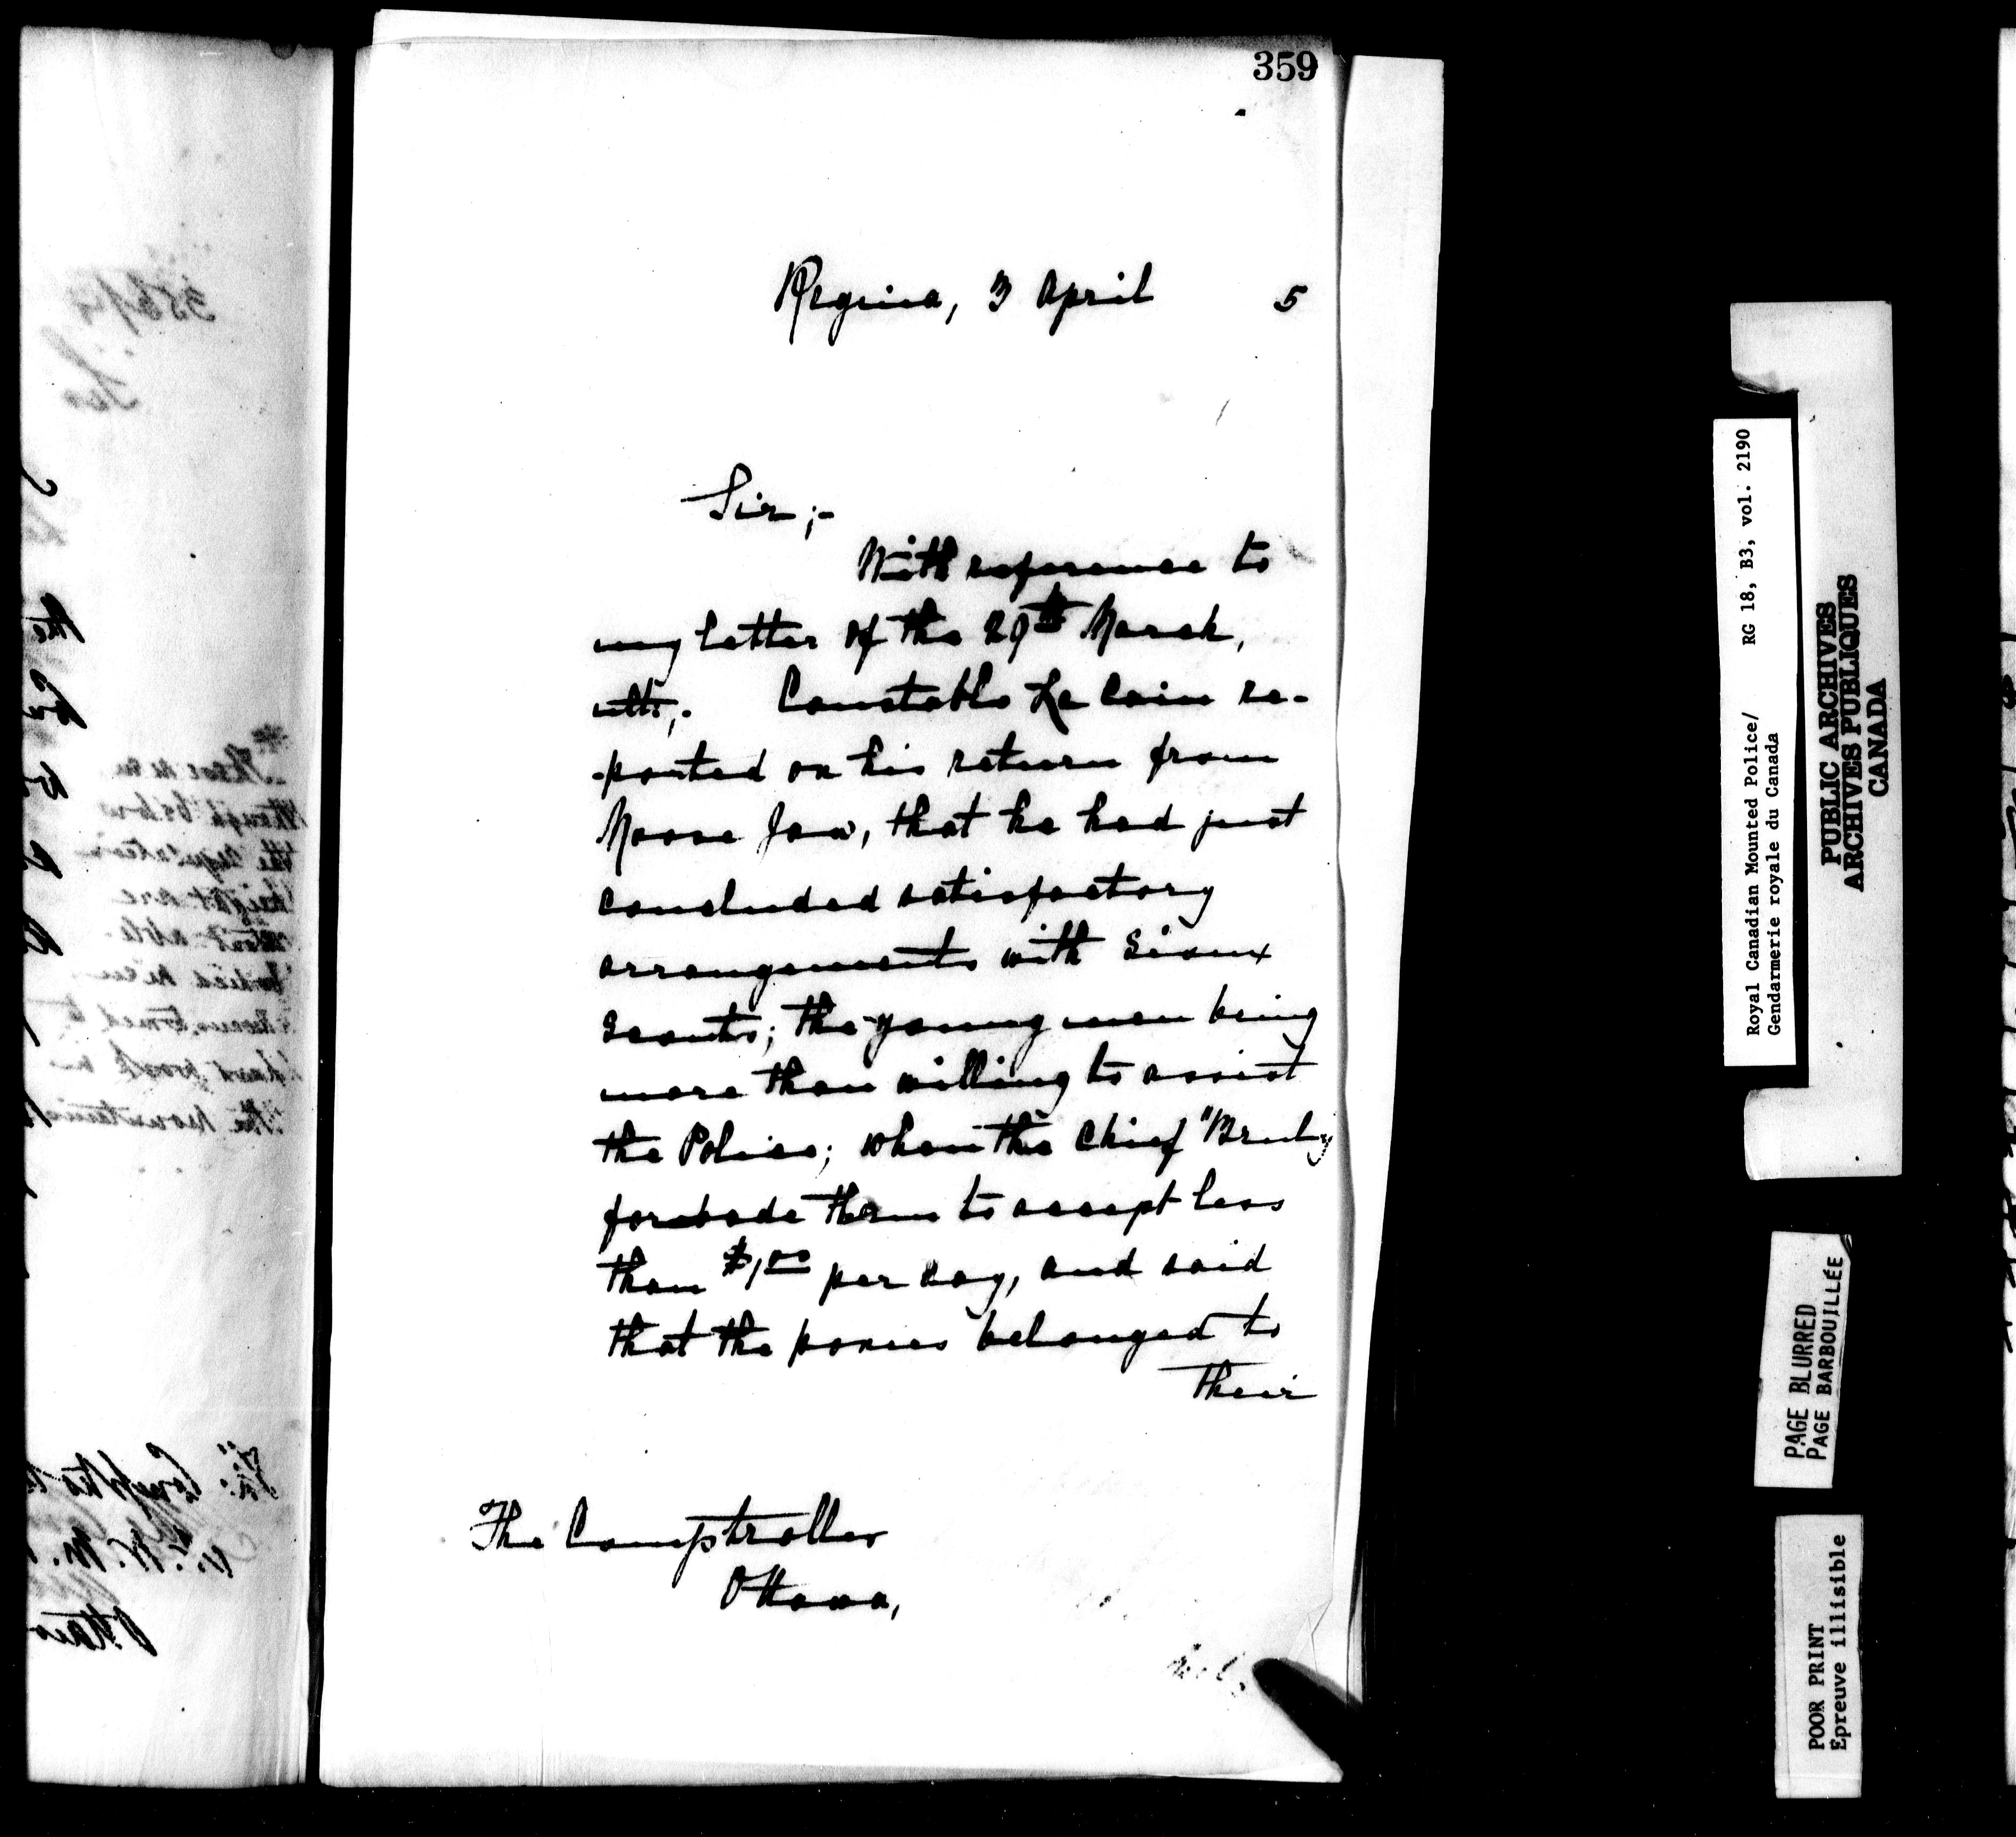 359
Regina, 3 April 5
Sir;-
With reference to
my letter of the 29th March,
ulto,. Constable Le Cain re-
-ported on his return from
Moose Jaw, that he had just
concluded satisfactory
arrangements with Sioux
Scouts; the young men being
more than willing to assist
the Police; when the Chief "Bruly"
forebade them to accept less
than $1.00 per day, and said
that the ponies belonged to
their
The Comptroller
Ottawa,
Royal Canadian Mounted Police/ RG 18, B3, vol. 2190
Gendarmerie royale du Canada
PUBLIC ARCHIVES
ARCHIVES PUBLIQUES
CANADA
PAGE BLURRED
PAGE BARBOUILLÉE
POOR PRINT
Epreuve illisible